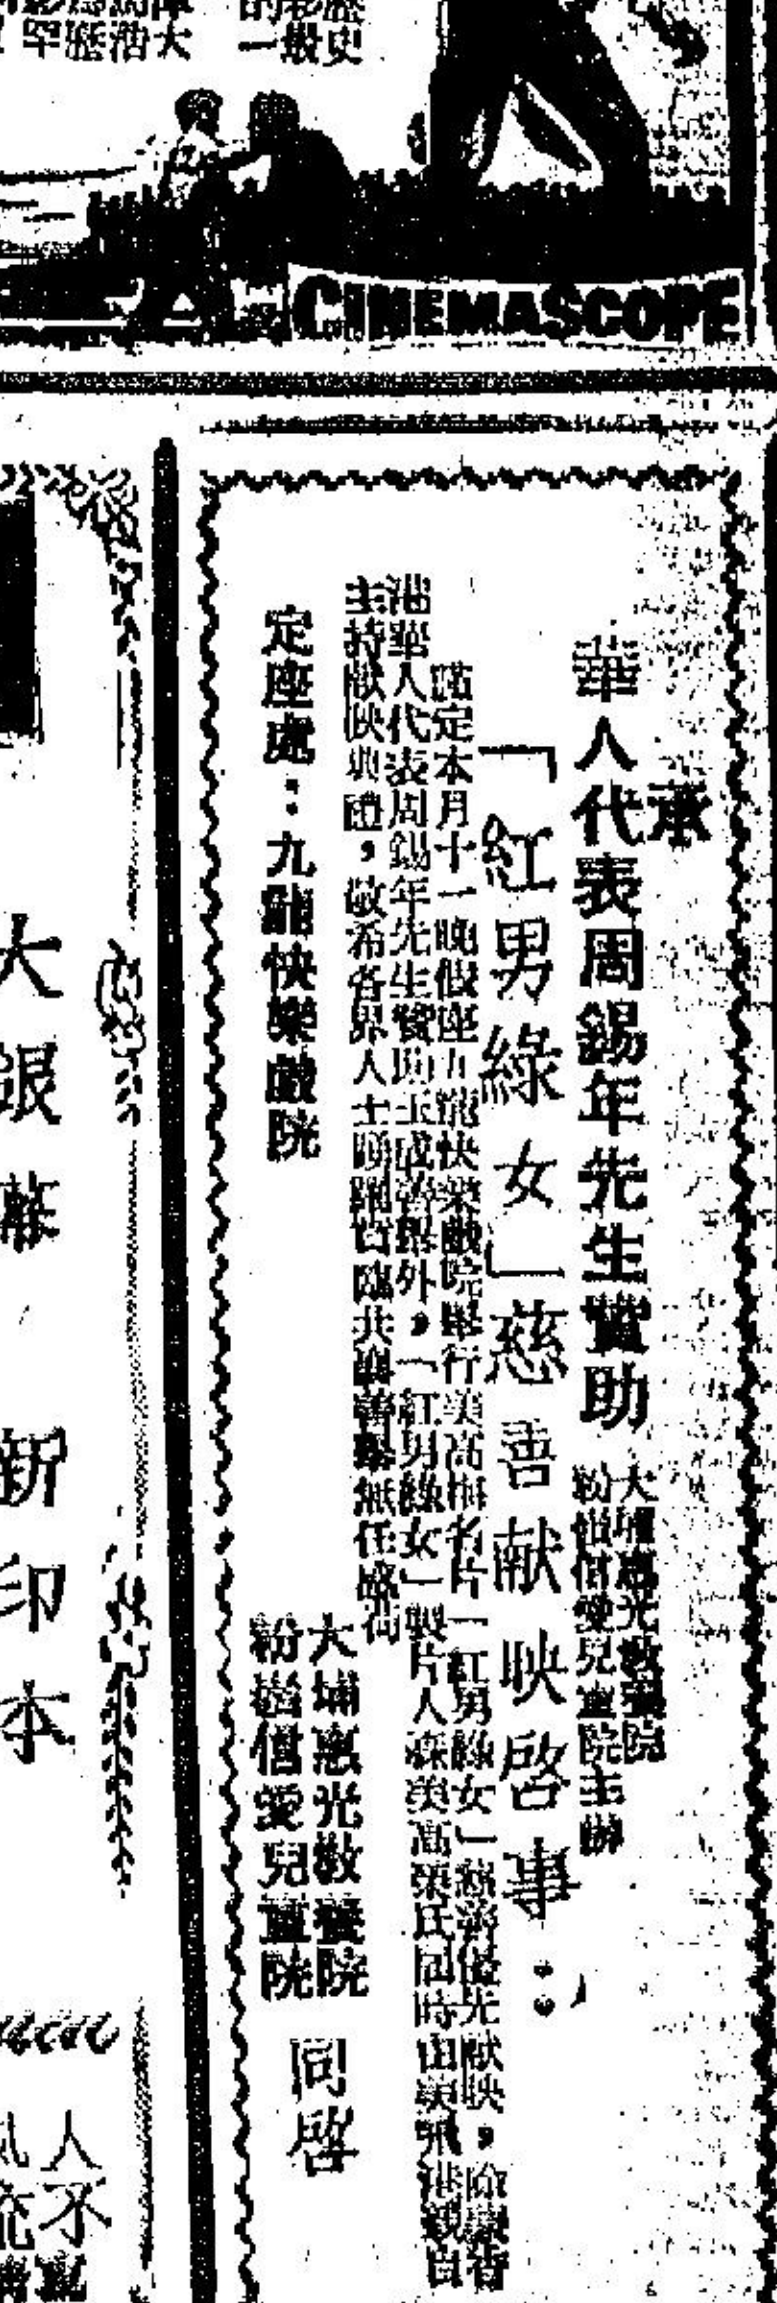 歷史
的一
CINEMASCOPE
承
華人代表周錫年先生贊助
大埔惠光敎養院
粉嶺信愛兒童院主辦
「紅男綠女」慈善献映啓事：
謹定本月十一晚假座九龍快樂戲院舉行美高梅名片「紅男綠女」慈善優先献映，除蒙香
港華人代表周錫年先生贊助玉成善舉外，「紅男綠女」製片人森美高榮氏同時由美飛港親自
主持献映典禮，敬希各界人士踴躍 臨共襄善舉無任感荷
定座處：九龍快樂戲院
大埔惠光敎養院
粉嶺信愛兒童院
同啓
大銀幕
新印本
人不